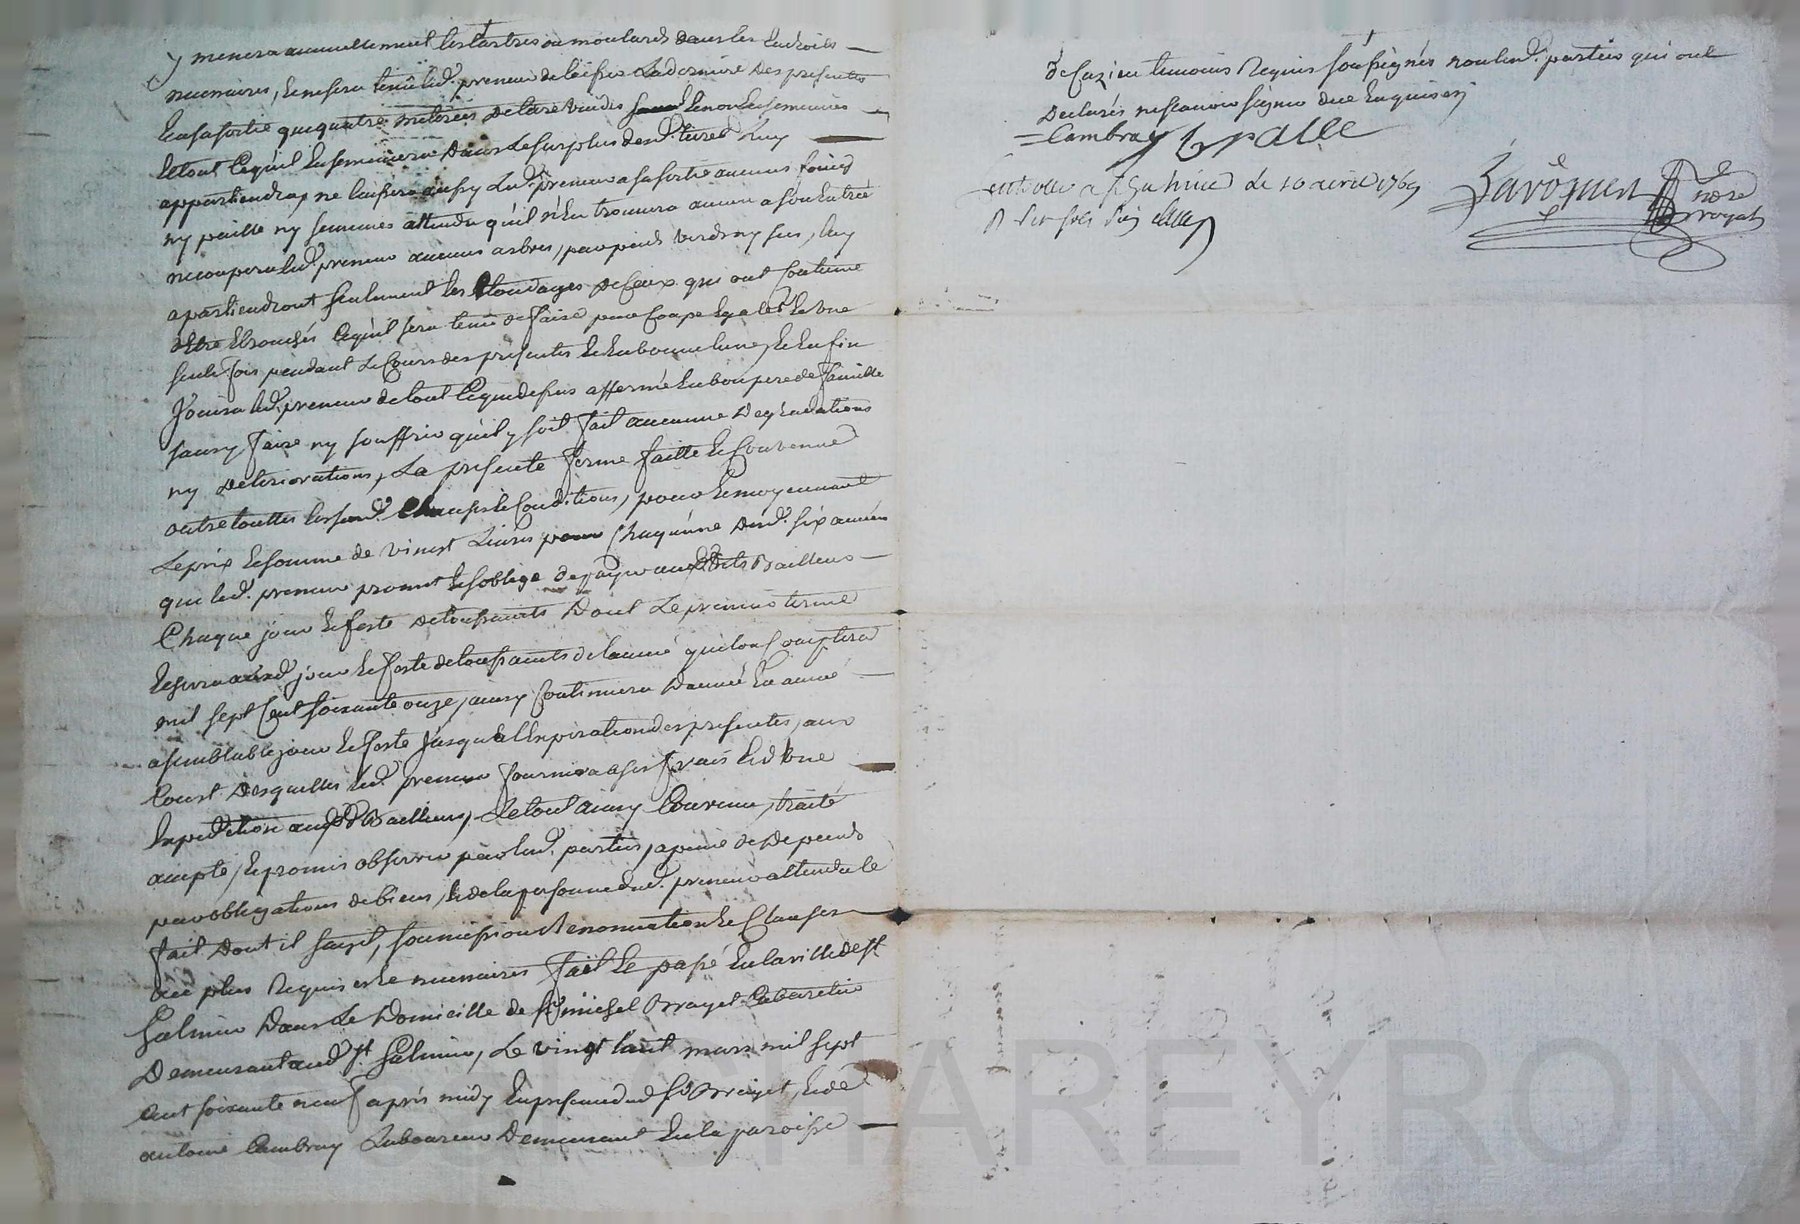 y menera annuellement les tartres ou moulards dans les endroits
necessaires, et ne sera tenu led. preneur de laisser la derniere des presentes
en sa sortie que quatre meterées de terre vuides et non ensemencées
le tout ce qu'il ensemencera dans le surplus desd. terres luy
appartiendra, ne laissera aussy led. preneur a sa sortie aucuns foins
ny paille ny semences attendu qu'il n'en trouvera aucun a son entrée
ne coupera led. preneur aucuns arbres, par pieds verds ny secs, luy
apartiendront seulement les tondages de ceux qui ont coutume
detre ebranchés ce qu'il sera tenu de faire par coupe egale et une
seule fois pendant le cours des presentes et en bonne lune, et enfin
jouira led. preneur de tout ce que dessus affermé en bon pere de famille
sans y faire ny souffrir qu'il y soit fait aucunne degradations
ny deteriorations, la presente ferme faitte et convenue
outre touttes les susd. clauses et conditions, pour et moyennant
le prix et somme de vingt livres pour chaqu'une desd. six années
que led. preneur promet et s'oblige de payer auxdits Bailleurs
chaque jour et feste de toussaints dont le premier terme
sera aud. jour et feste de toussaints de l'année que l'on comptera
mil sept cent soixante onze, ainsy continuera d'année en année
a semblable jour et feste jusqu'a l'expiration des presentes, aux
cours desquelles led. preneur fournira a ses frais et d'une
expedition auxd. Bailleurs, le tout ainsy convenu, traité
accepté, et promis observer par lesd. parties, a peine de depends
par obligations de biens, et de la personne dud. preneur attendu le
fait dont il s'agit, soumission renonciation et clauses
au plus requises et necessaires fait et passé en la ville de st
Galmier dans le domicille de sr. michel Brayet Cabaretier
Demeurant aud. st Galmier, le vingt huit mars mil sept
cent soixante neuf après midy en presence dud. sr Brayet, et de
antoine Cambray Laboureur Demeurant en la paroisse
de Cuzieu temoins requis soussignés non lesd. parties qui ont
declarés ne scavoir signer de ce enquis
= Cambray Bralle
controllé a st Galmier le 10 avril 1769
R
Lavosgien nore
royal
CHAREYRON